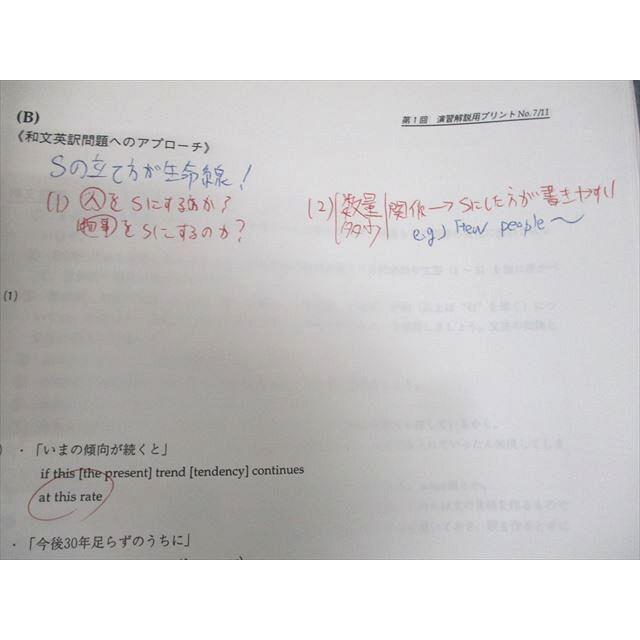 (B)
第1回 演習解説用プリント No. 7/11
《和文英訳問題へのアプローチ》
Sの立て方が生命線!
(1) 人をSにするのか?
物事をSにするのか?
(2) 数量 関係→Sにした方が書きやすい
多少
e.g.) Few people ~
(1)
・「いまの傾向が続くと」
if this [the present] trend [tendency] continues
at this rate
・「今後30年足らずのうちに」